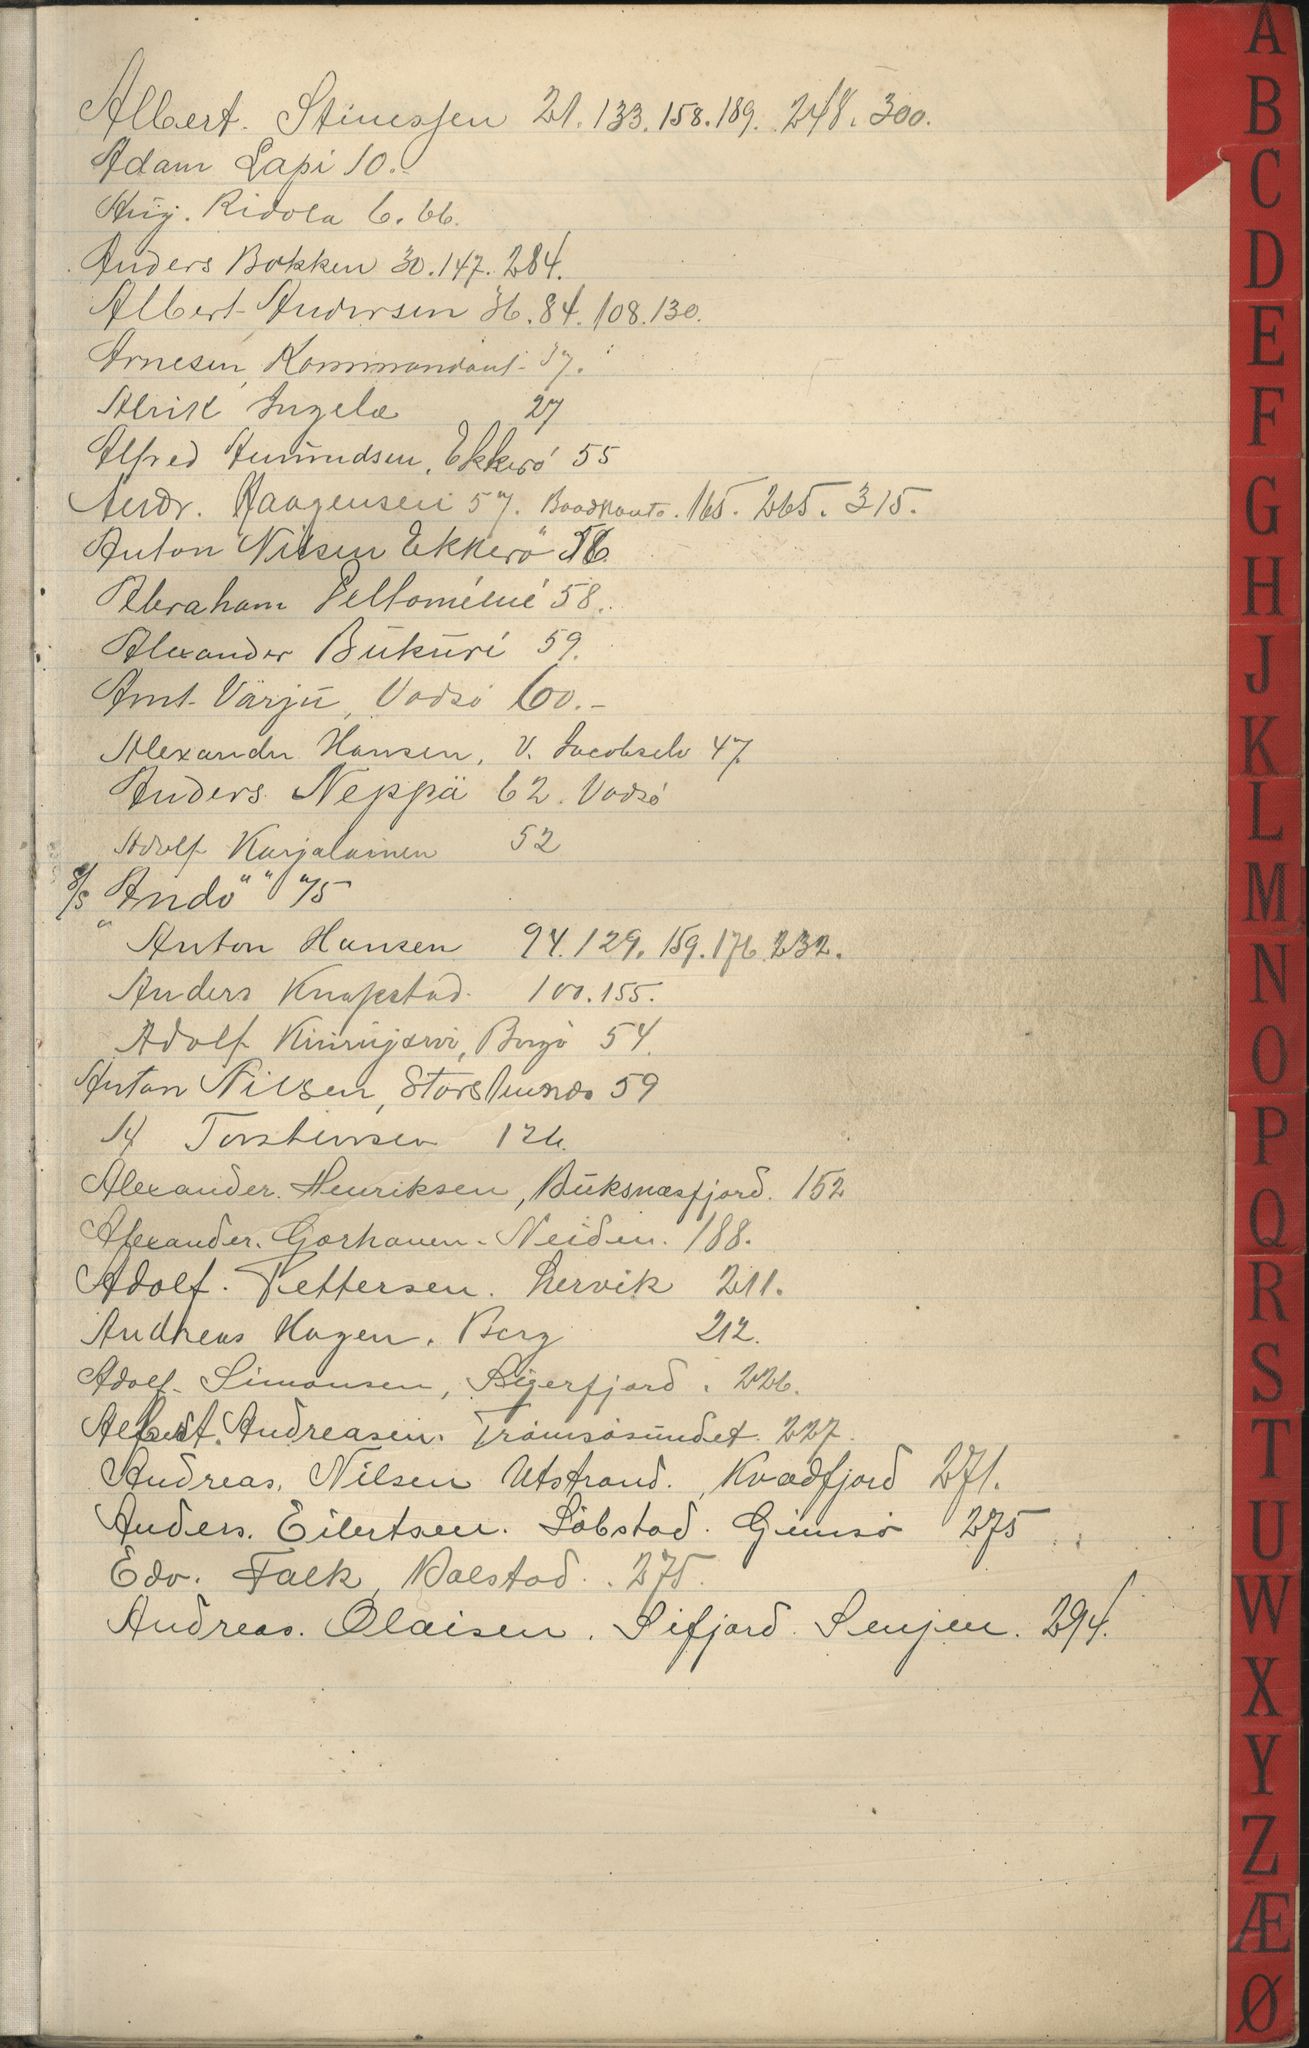 Albert. Stinessen 21. 133. 158. 189. 248. 300.
Adam Lapi 10.
Aug. Ridola 6. 66.
Anders Bokken 30. 147. 284.
Albert Andersen 36. 84. 108. 130.
Arnesen, Kommandant 37.
Alrik Ingelæ 27
Alfred Amundsen, Ekkerö 55
Andr. Haagensen 57. Baadkonto. 165. 265. 315.
Anton Nilsen Ekkerö 56.
Abraham 58.
Alexander Bukuri 59.
Amt Värjü, Vadsö 60.-
Alexander Hansen, V. Jacobselv 47
Anders Neppä 62. Vadsö
Adolf Karjalainen 52
S/S "Andö" 75
Anton Hansen 94. 129. 159. 176. 232.
Anders Knapstad 100. 155.
Adolf 54.
Anton Nilsen, 59
A Torstensen 126.
Alexander. Henriksen, Buksnæsfjord. 152
Alexander. Neiden. 188.
Adolf. Pettersen. Lervik 211.
Andreas Hagen. Berg 212.
Adolf Simonsen, Sigerfjord. 226.
Andreasen. Tromsøsundet. 227.
Andreas. Nilsen Utstrand., Kvædfjord 271.
Anders. Eilertsen. Söbstad. Gimsö 275
Edv. Falk, Balstad. 275.
Andreas. Olaisen. Sifjord. Senjen. 294.
A
B
C
D
E
F
G
H
J
K
L
M
N
O
P
Q
R
S
T
U
W
X
Y
Z
Æ
Ø